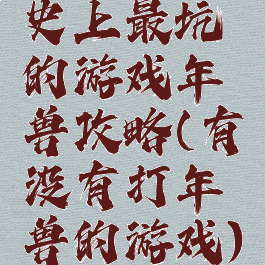 史上最坑
的游戏年
兽攻略(有
没有打年
兽的游戏)